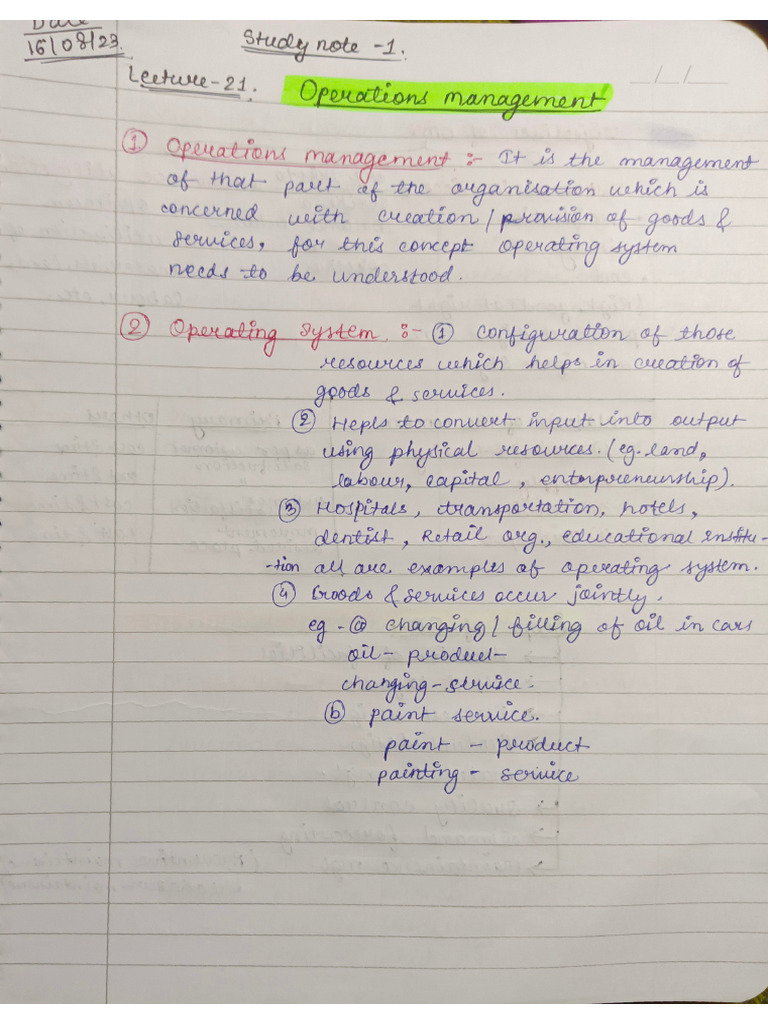 Date
16/08/23.
Study note -1.
Lecture-21. Operations management
① Operations management :- It is the management
of that part of the organisation which is
concerned with creation/provision of goods &
services, for this concept operating system
needs to be understood.
② Operating system :- ① configuration of those
resources which helps in creation of
goods & services.
② Hepls to convert input into output
using physical resources. (eg. land,
labour, capital, enterpreneurship).
③ Hospitals, transportation, hotels,
dentist, Retail org., educational institu-
-tion all are examples of operating system.
④ Goods & services occur jointly.
eg - ⓐ changing/filling of oil in cars
oil - product
changing - service.
ⓑ paint service.
paint - product
painting - service